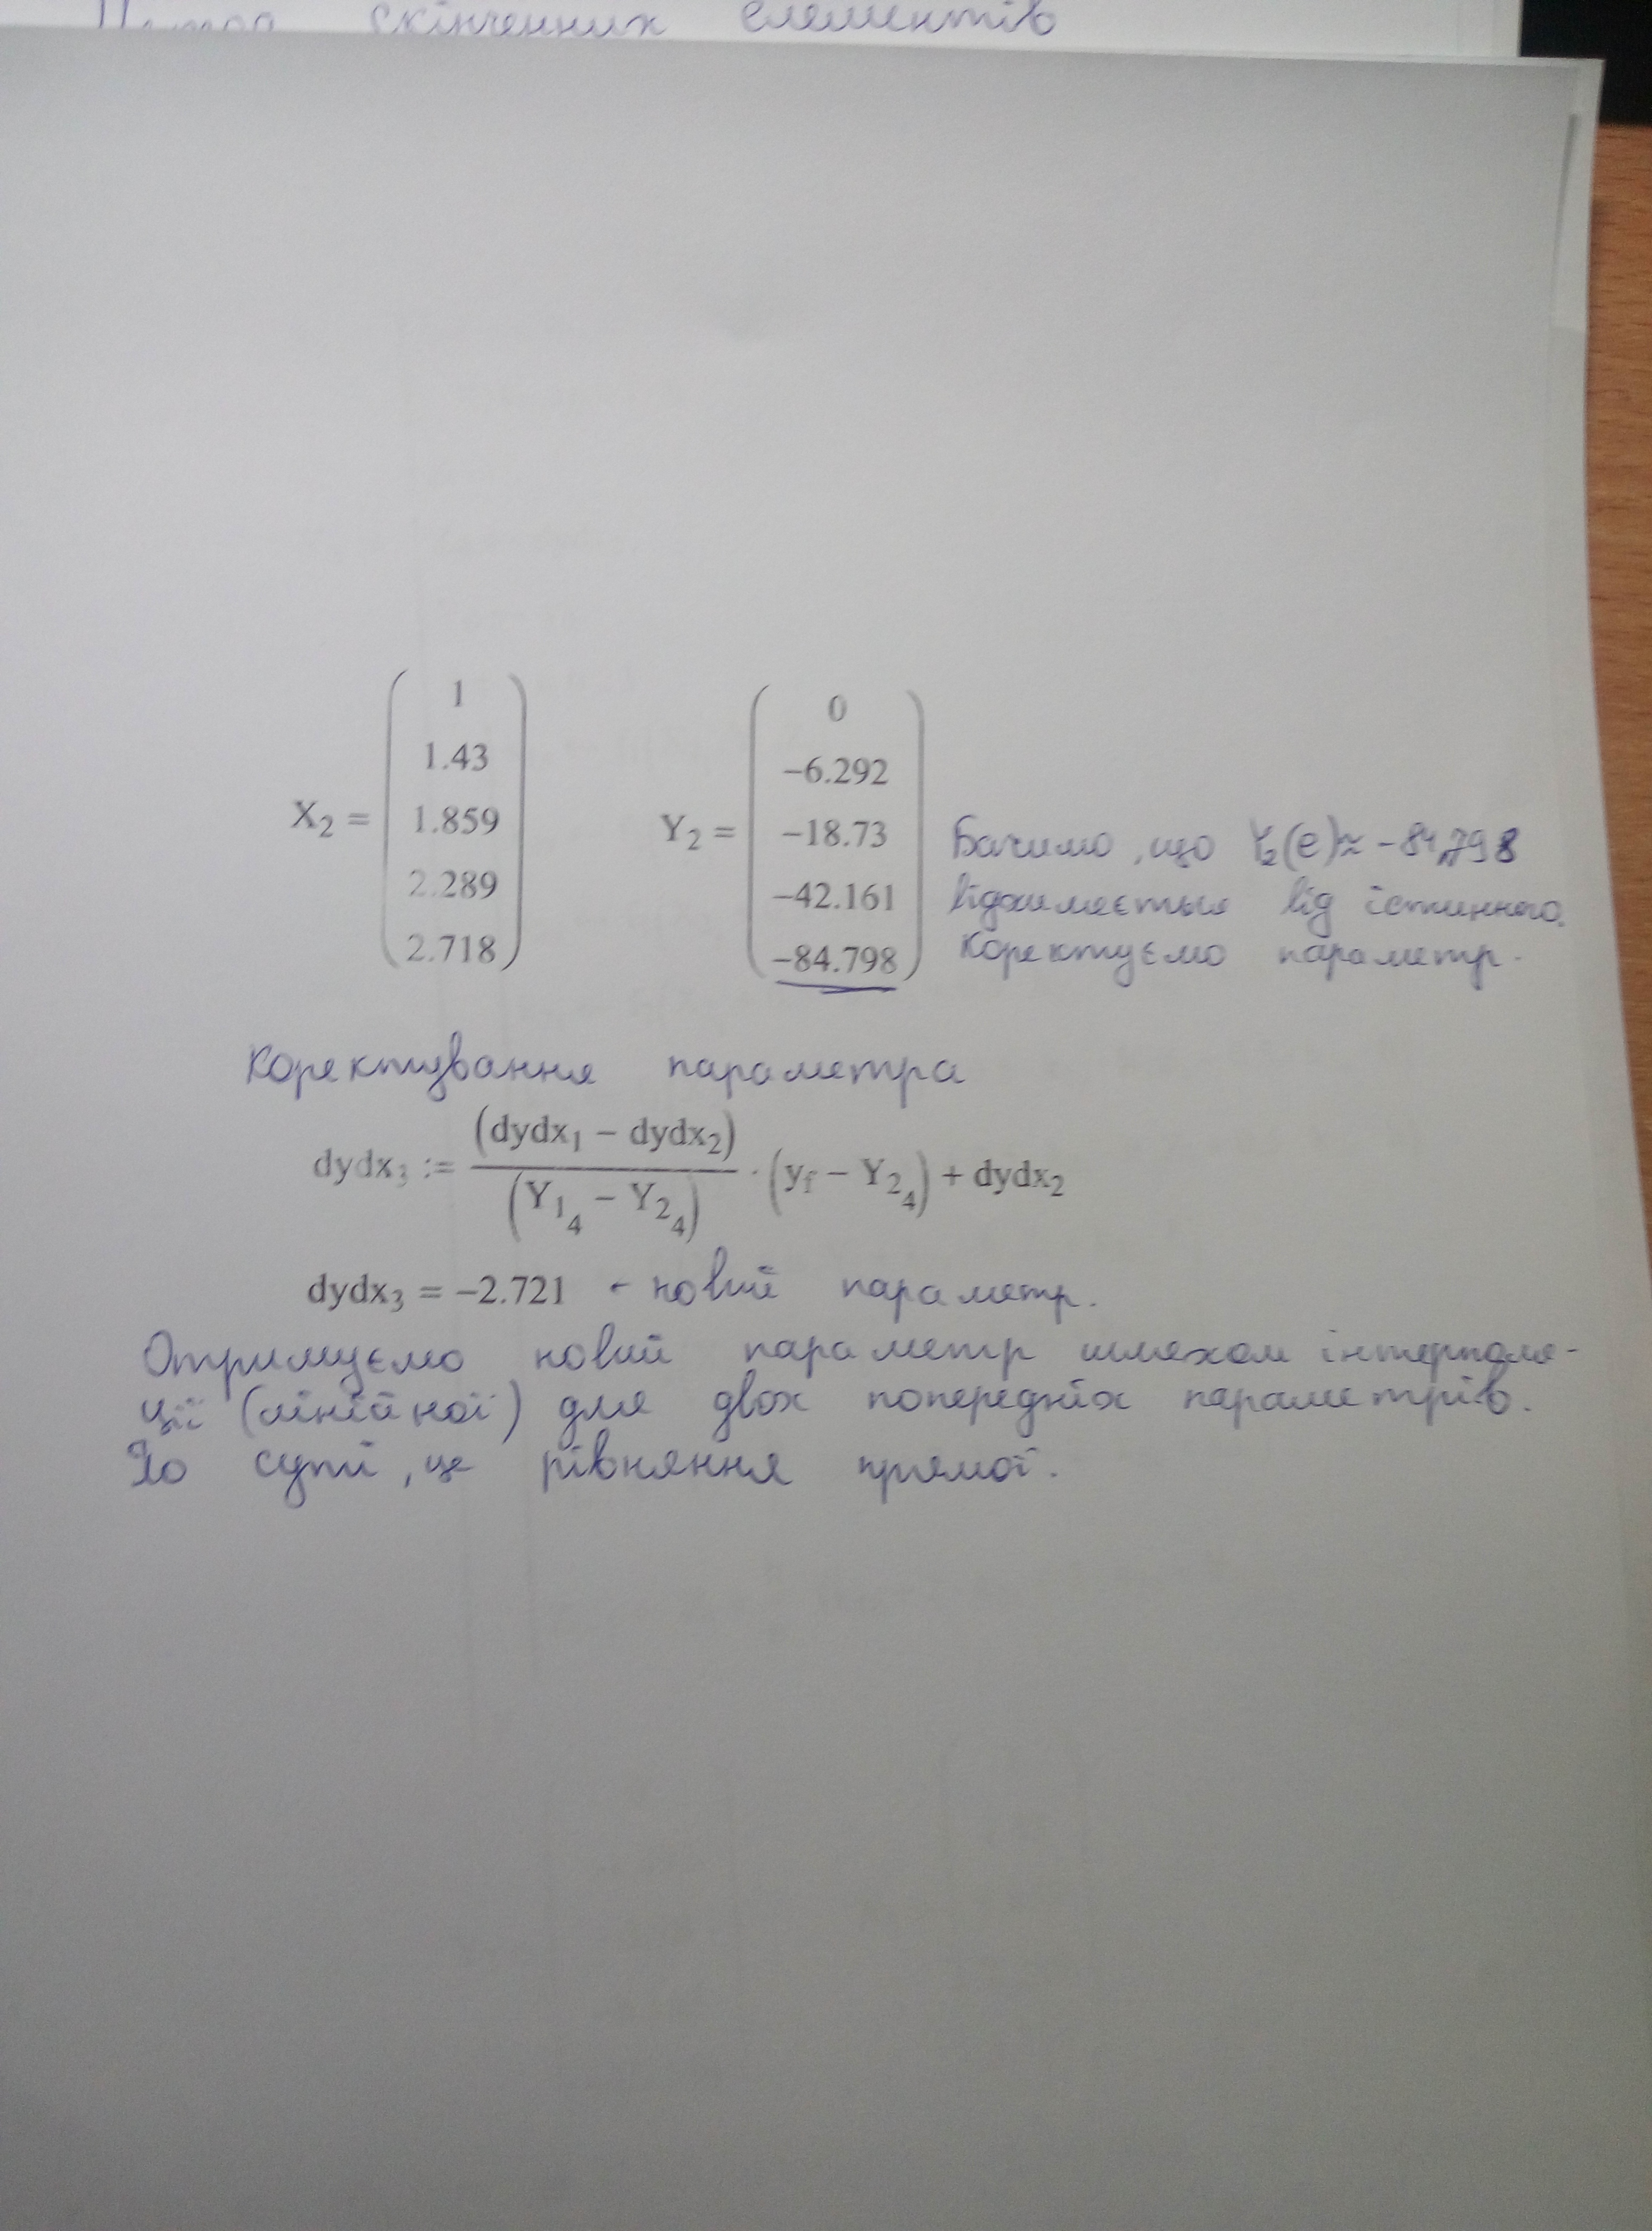 скінченних елементів
X₂ = ( 1 1.43 1.859 2.289 2.718 ) Y₂ = ( 0 −6.292 −18.73 −42.161 −84.798 )
Бачимо, що Y₂(e)≈ -84,798
відхиляється від істинного.
Коректуємо параметр.
Коректування параметра
dydx₃ := (dydx₁ − dydx₂) / (Y₁₄ − Y₂₄) · (y_f − Y₂₄) + dydx₂
dydx₃ = −2.721 - новий параметр.
Отримуємо новий параметр шляхом інтерполя-
ції (лінійної) для двох попередніх параметрів.
По суті, це рівняння прямої.